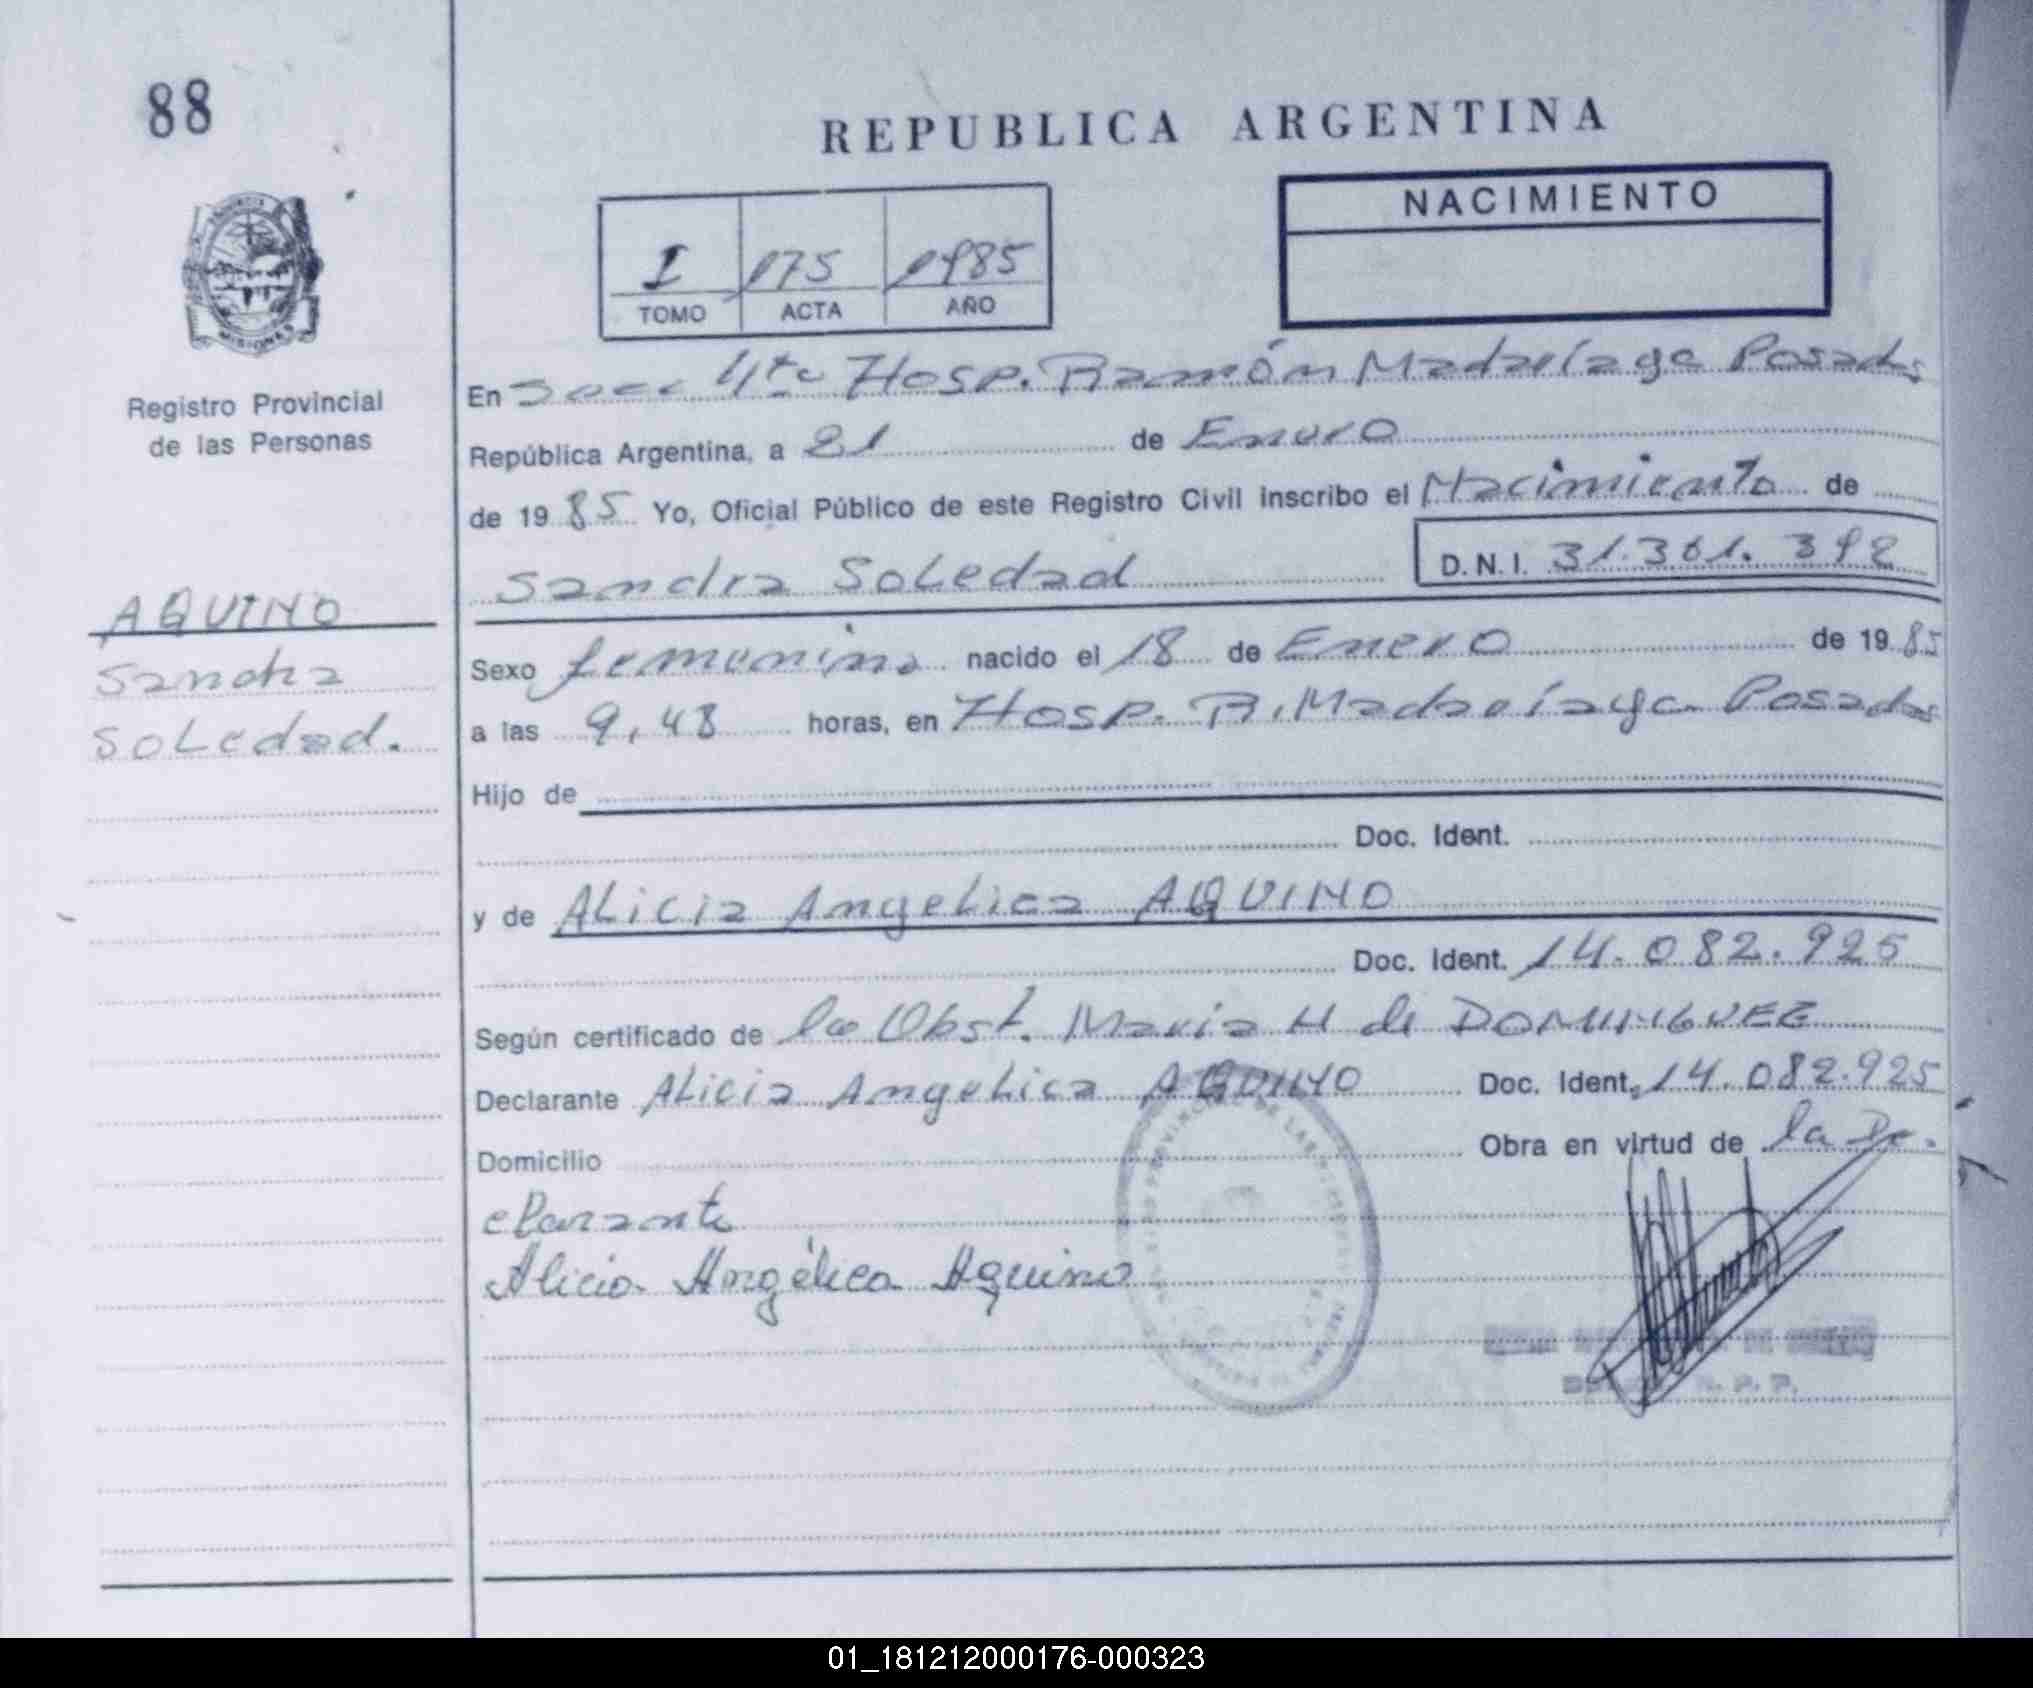 88
REPUBLICA ARGENTINA
NACIMIENTO
I 175 1985
TOMO ACTA AÑO
PROVINCIA
MISIONES
Registro Provincial
de las Personas
En Secc 4ta Hosp. Ramón Madariaga Posadas
República Argentina, a 21 de Enero
de 1985 Yo, Oficial Público de este Registro Civil inscribo el Nacimiento de
Sandra Soledad D.N.I. 31.301.392
AQUINO
Sandra
Soledad.
Sexo femenino nacido el 18 de Enero de 1985
a las 9,48 horas, en Hosp. R. Madariaga Posadas
Hijo de
Doc. Ident.
y de Alicia Angelica AQUINO
Doc. Ident. 14.082.925
Según certificado de la Obst. Maria H de DOMINGUEZ
Declarante Alicia Angelica AQUINO Doc. Ident. 14.082.925
Domicilio Obra en virtud de la De.
clarante
Alicia Angélica Aquino
01_181212000176-000323